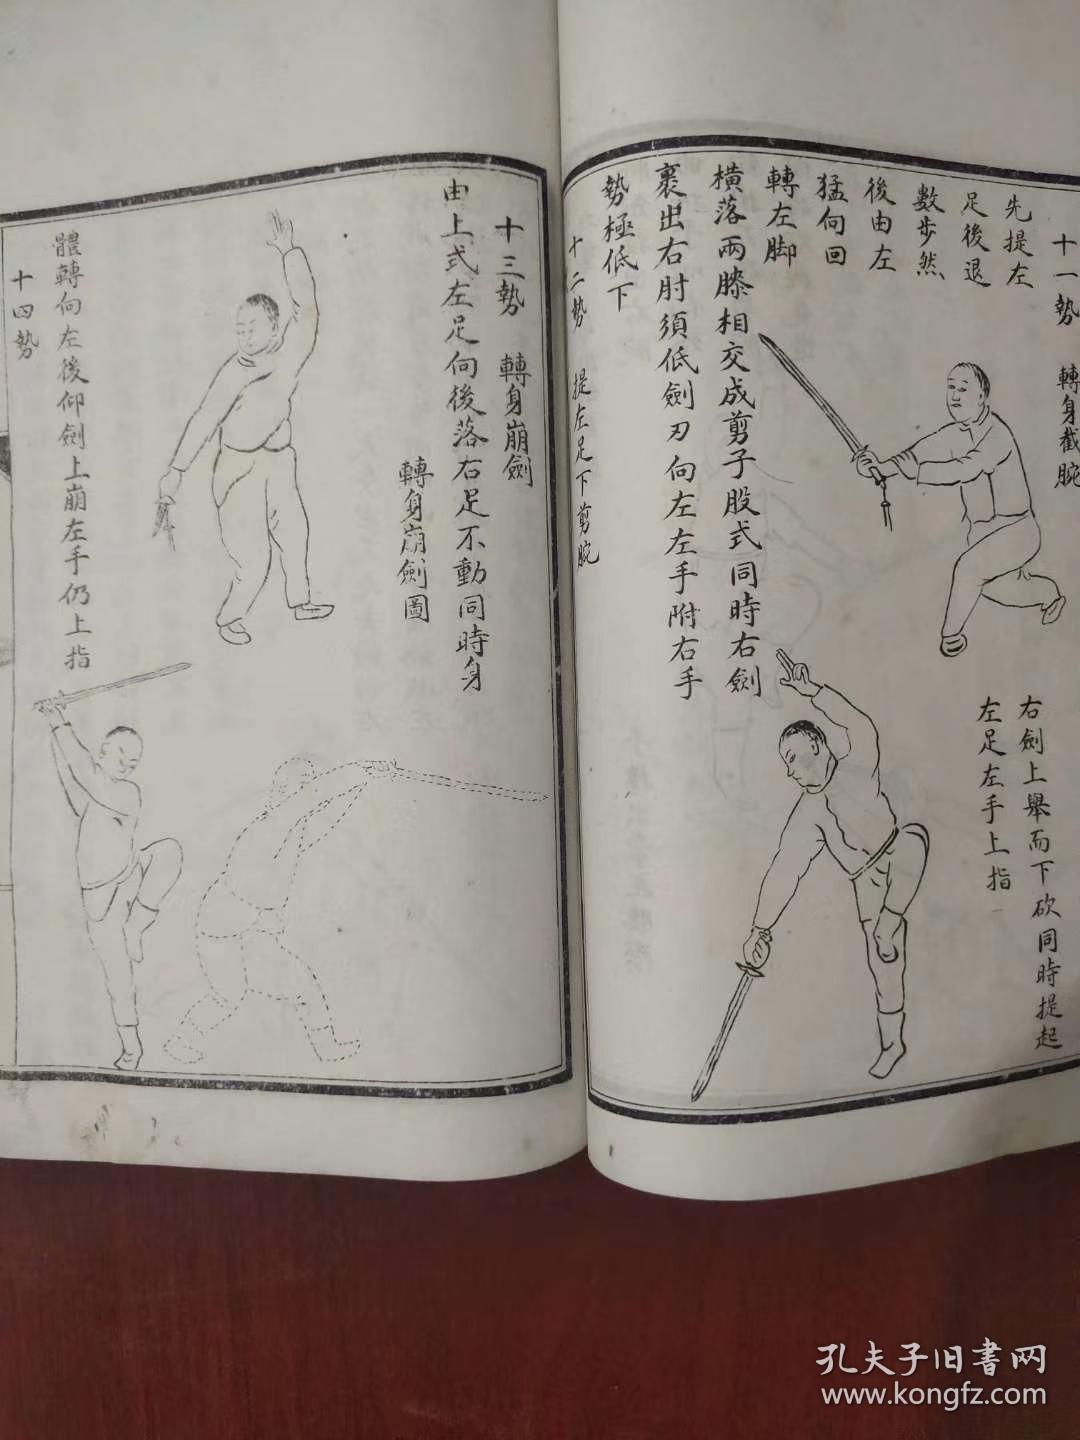 十一勢　轉身截腕
先提左
足後退
數步然
後由左
猛向回
轉左脚
橫落兩膝相交成剪子股式同時右劍
裹出右肘須低劍刃向左左手附右手
勢極低下
十二勢　提左足下剪腕
右劍上舉而下砍同時提起
左足左手上指
十三勢　轉身崩劍
由上式左足向後落右足不動同時身
轉身崩劍圖
體轉向左後仰劍上崩左手仍上指
十四勢
孔夫子旧書网
www.kongfz.com